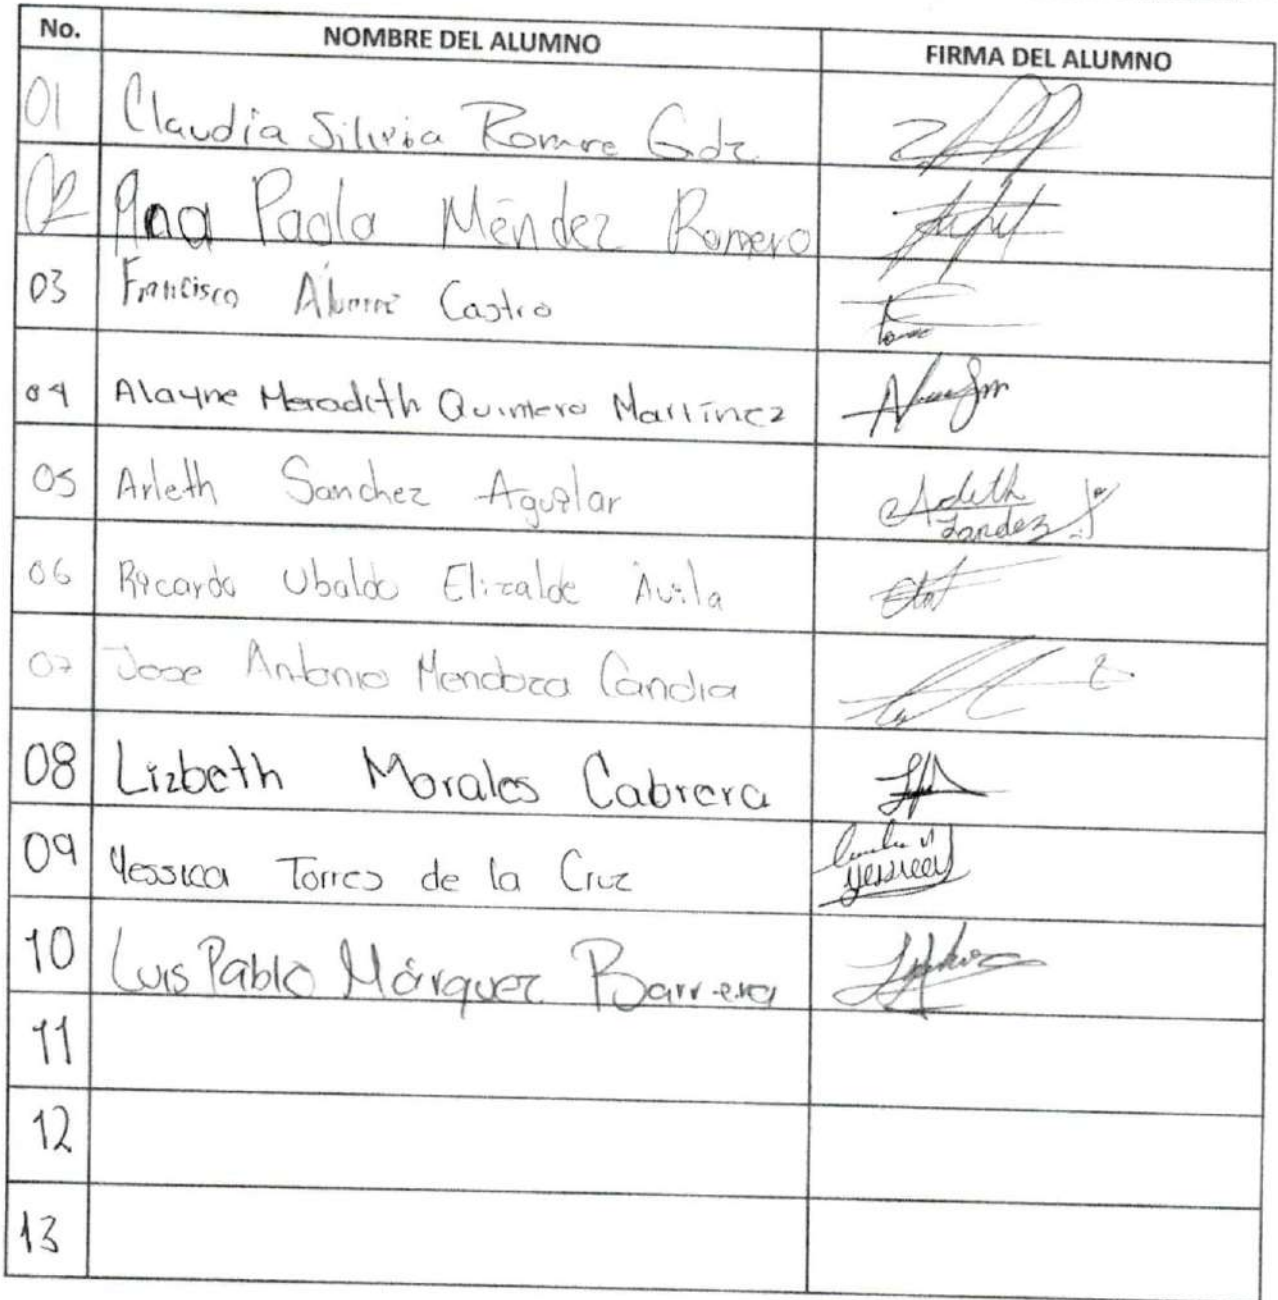 No. NOMBRE DEL ALUMNO FIRMA DEL ALUMNO
01 Claudia Silvia Romero Gdz
02 Ana Paola Méndez Romero
03 Francisco Castro
04 Alayne Meradith Quintero Martínez
05 Arleth Sanchez Aguilar
06 Ricardo Ubaldo Elizalde Avila
07 Jose Antonio Mendoza Candia
08 Lizbeth Morales Cabrera
09 Yessica Torres de la Cruz
10 Luis Pablo Márquez Barrera
11
12
13